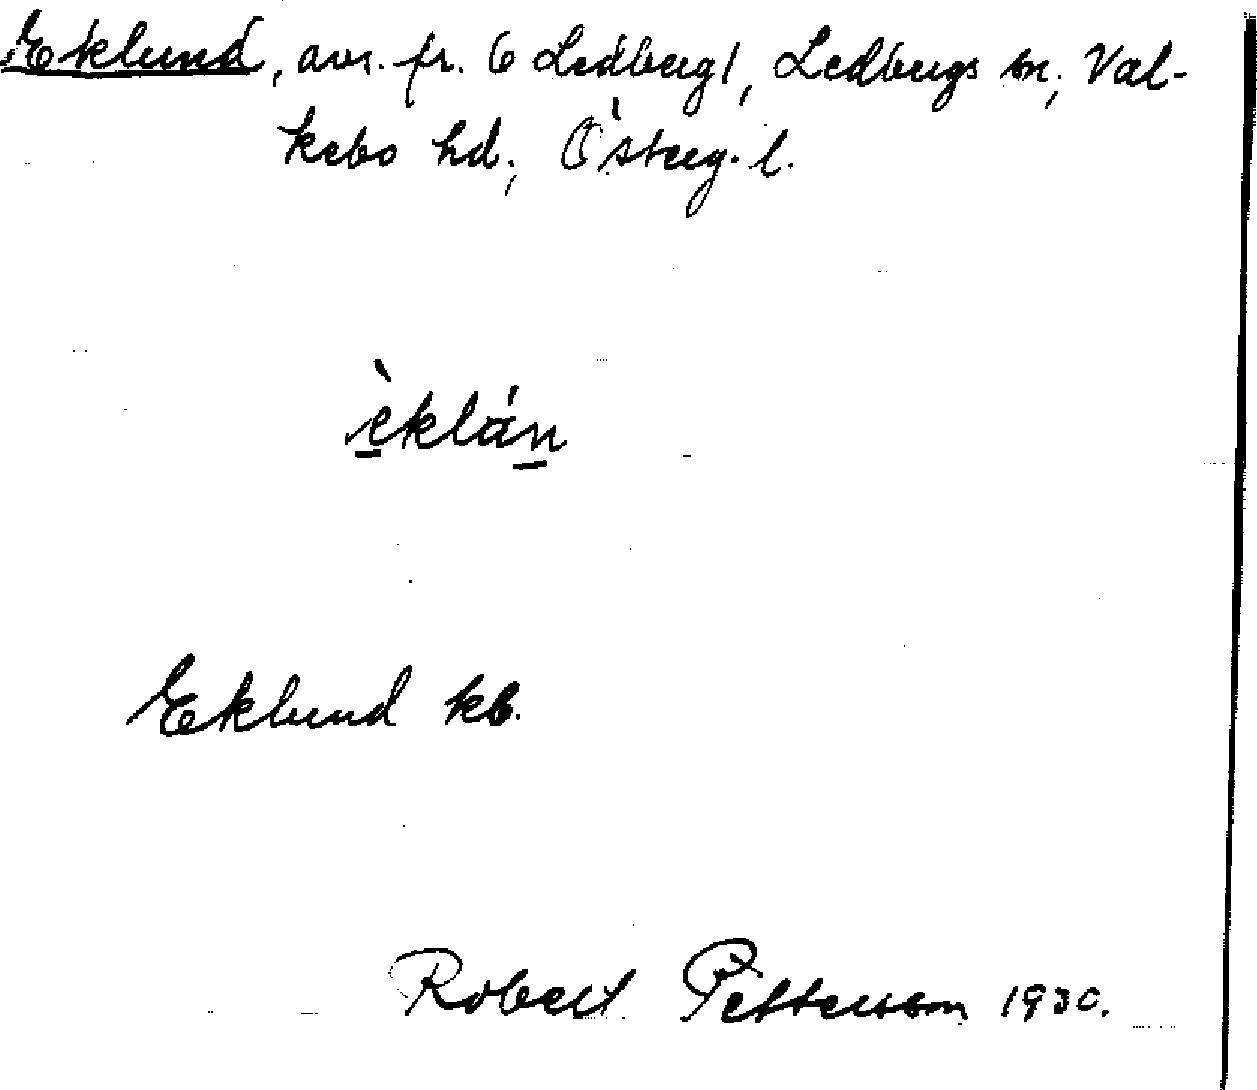 Eklund, avs. fr. 6 Ledberg 1, Ledbergs sn., Val-
kebo hd., Österg. l.
èklán
Eklund kb.
Robert Petterson 1930.